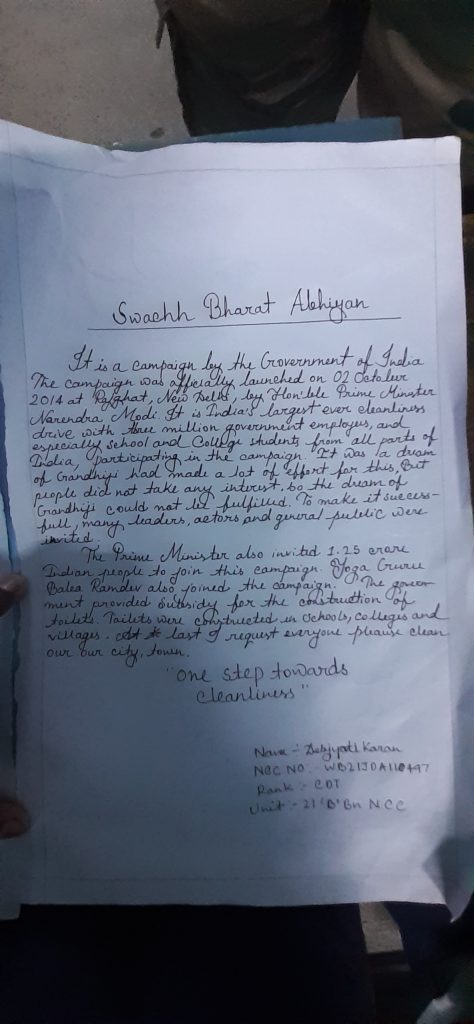 Swachh Bharat Abhiyan
It is a campaign by the Government of India
The campaign was officially launched on 02 October
2014 at Rajghat, New Delhi, by Hon'ble Prime Minister
Narendra Modi. It is India's largest ever cleanliness
drive with three million government employees, and
especially school and College students from all parts of
India, participating in the campaign. It was a dream
of Gandhiji had made a lot of effort for this, But
people did not take any interest, so the dream of
Gandhiji could not be fulfilled. To make it success-
full, many leaders, actors and general public were
invited.
The Prime Minister also invited 1.25 crore
Indian people to join this campaign. Yoga Guru
Baba Ramdev also joined the campaign. The govern-
ment provided subsidy for the construction of
toilets. Toilets were constructed in schools, colleges and
villages. At last I request everyone please clean
our our city, town.
"One step towards
cleanliness"
Name :- Debjyoti Karan
NCC NO :- WB21JDA110447
Rank :- CDT
Unit :- 21 'B' Bn NCC